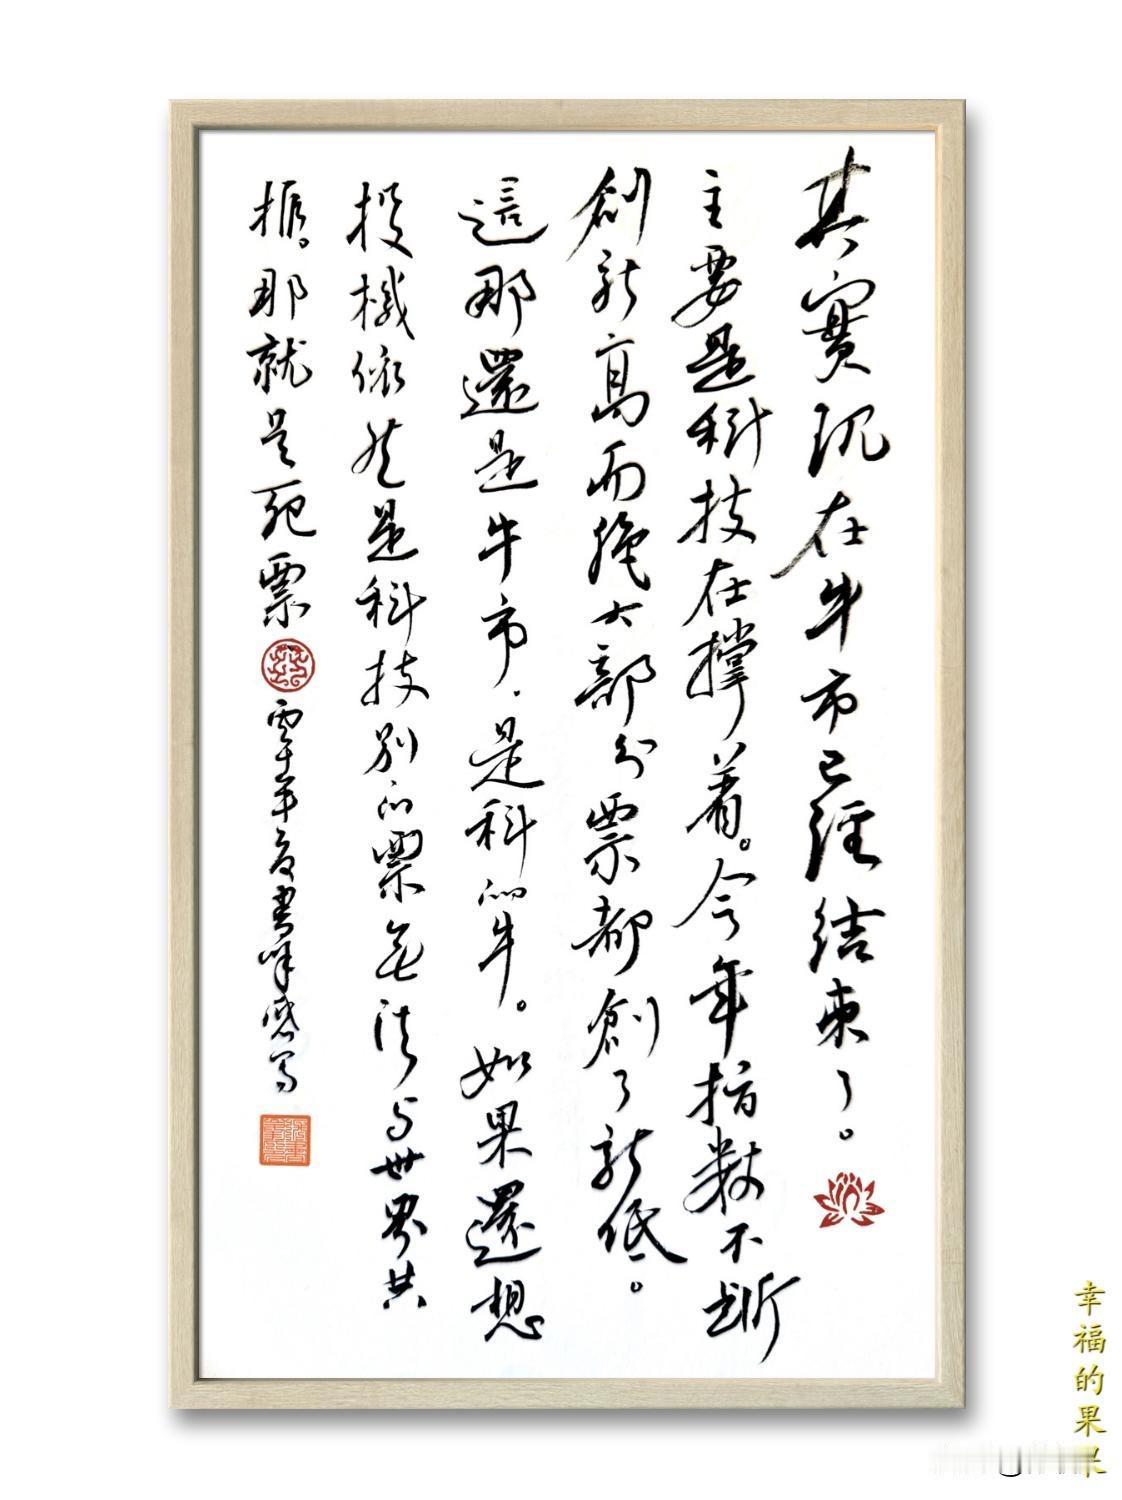 其實現在牛市已經結束了。
主要是科技在撐着。今年指數不斷
創新高而絶大部分票都創了新低。
這那還是牛市．是科的牛。如果還想
投機依然是科技別的票無法与世界共
振。那就是死票
書峰感写
幸福的果果